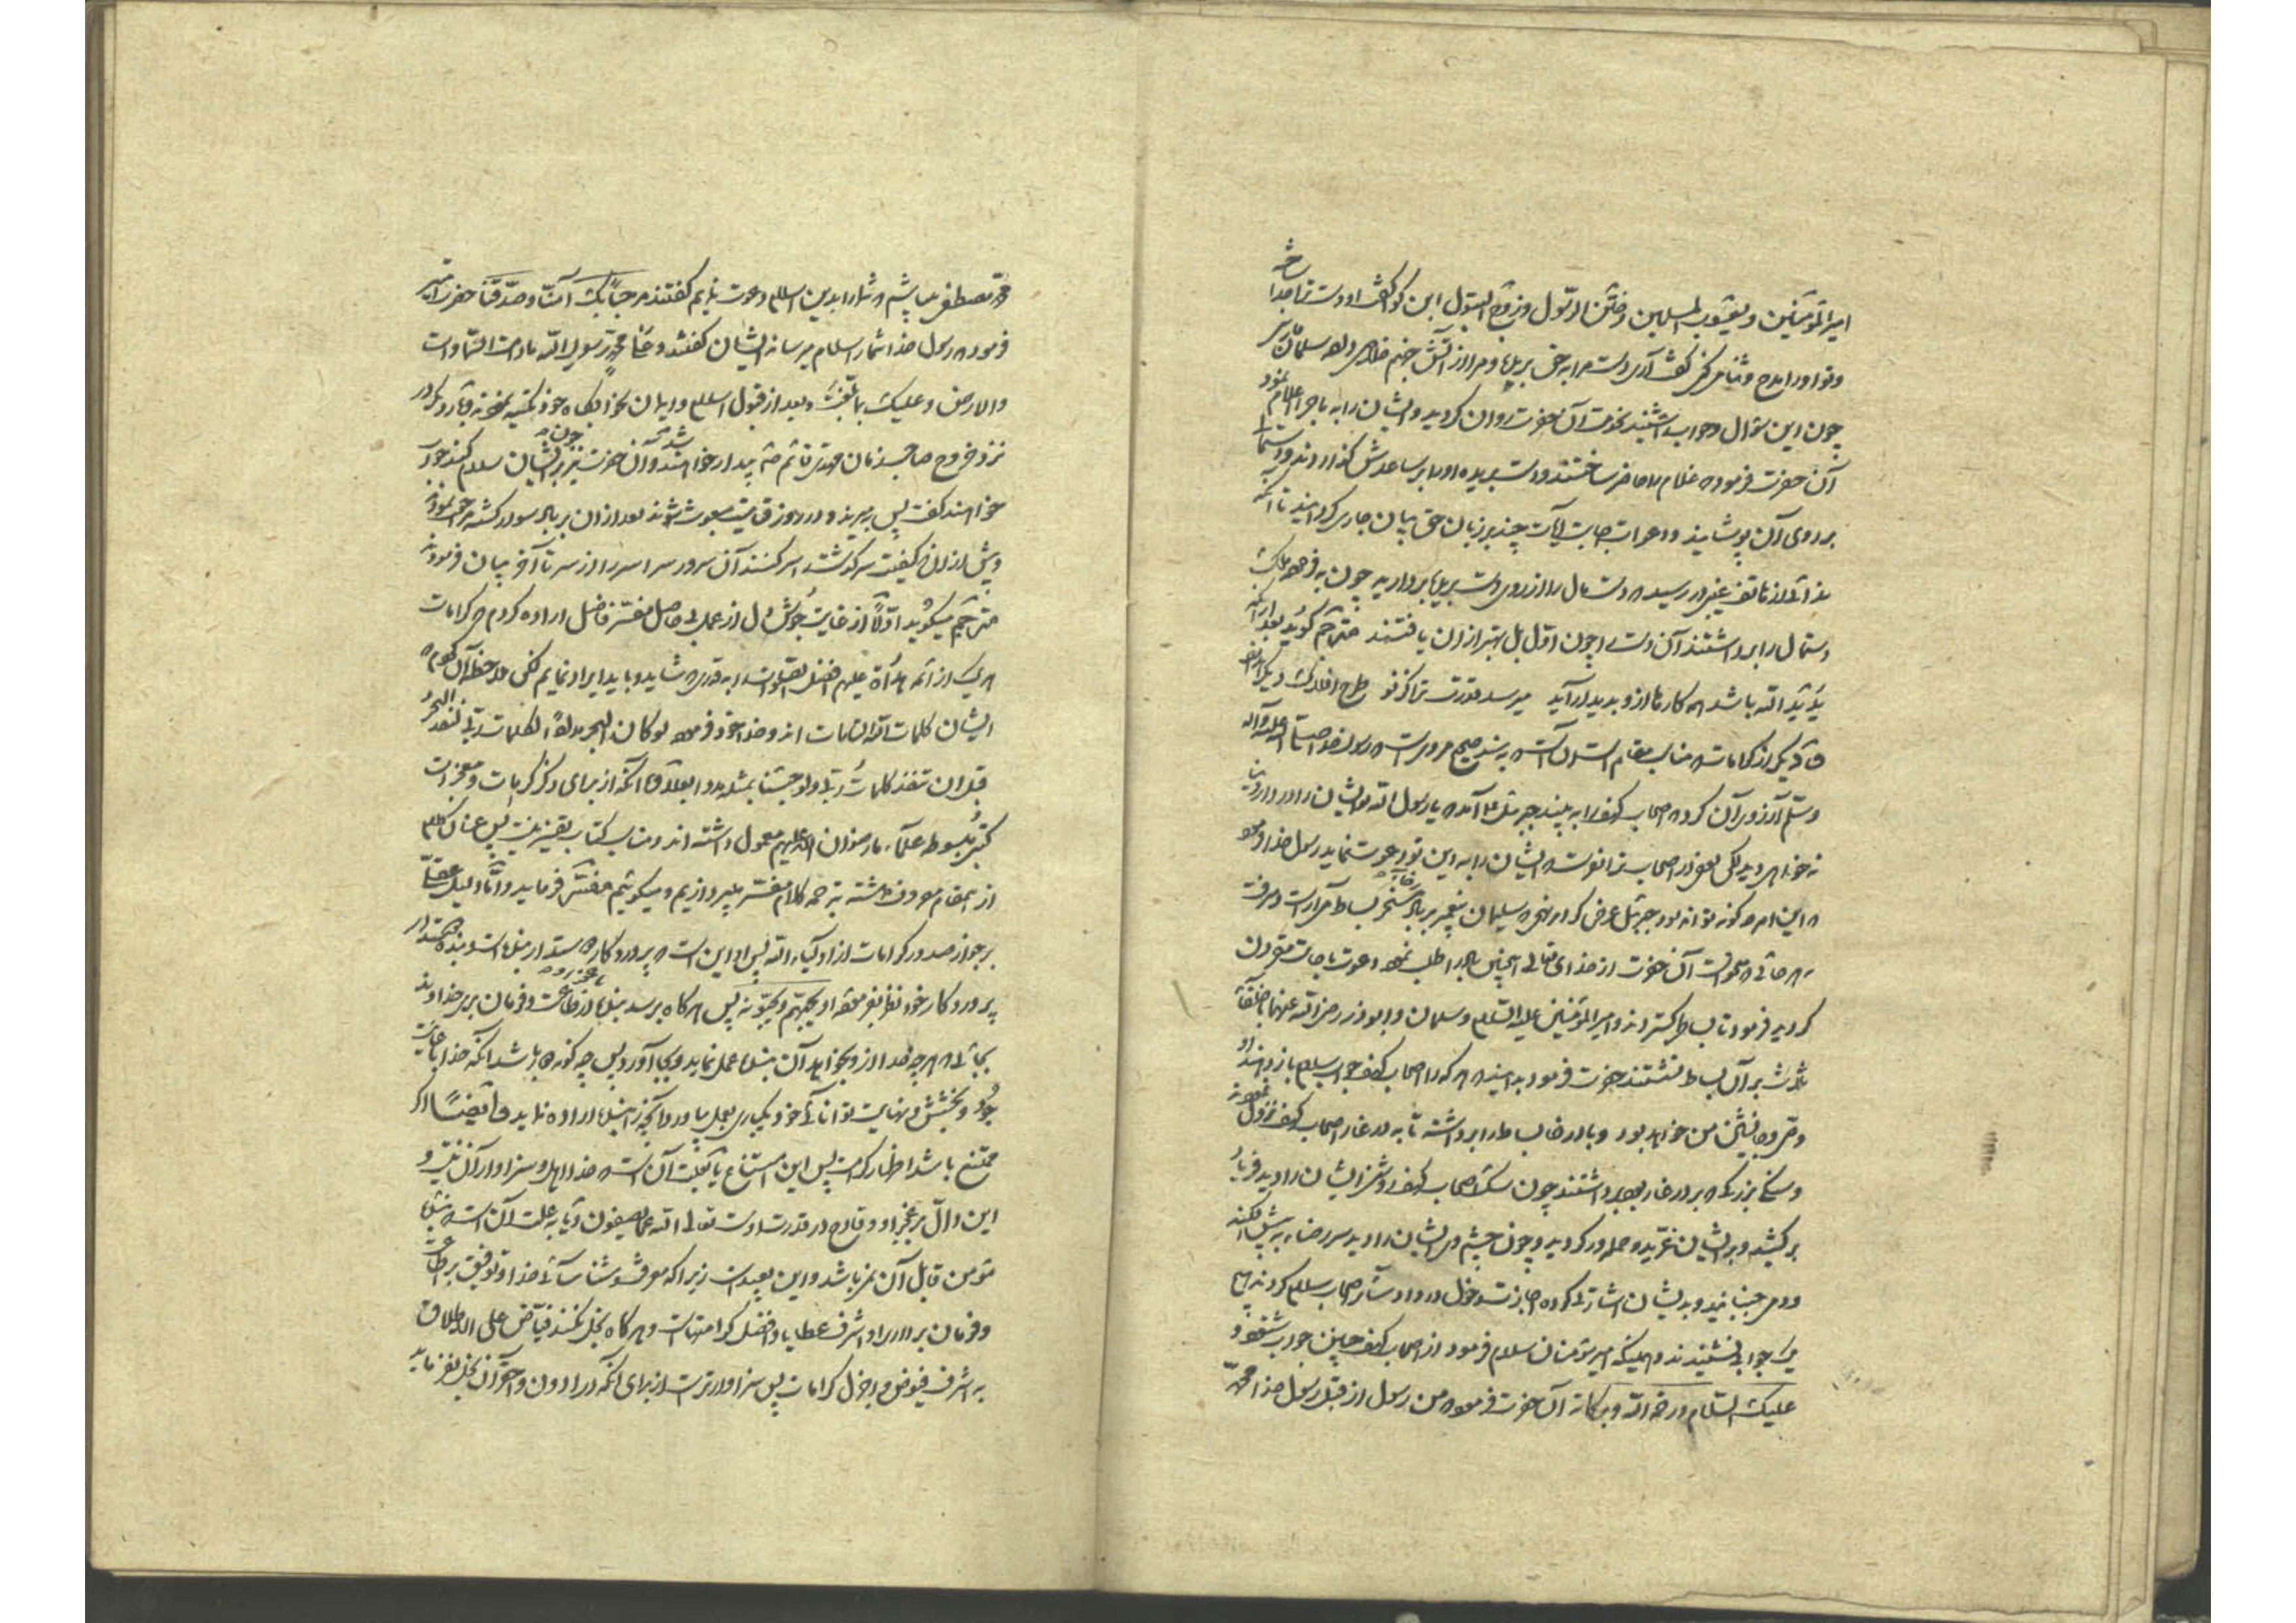 امیرالمؤمنین و یعسوب المسلمین و ختن الرسول و زوج البتول ابن کوا گفت او دست ترا جدا ساخته
و تو او را مدح و ثنا میکنی گفت آری دست مرا به حق برید و مرا از آتش جهنم خلاصی داد سلمان فارسی
چون این سؤال و جواب شنید بخدمت آن حضرت روان گردید و ایشان را به ماجرا اعلام نمود
آن حضرت فرمود غلام را حاضر ساختند و دست بریده او را بر ساعدش گذاردند و دستمال
بر روی آن پوشانید و دعوات اجابت آیات چند بر زبان حق بیان جاری گردانید تا آنکه
ندائی از هاتف غیبی در رسید که دستمال را از روی دست بریده بردارید چون به فرموده ملک
دستمال را برداشتند آن دست را چون اول بل بهتر از آن یافتند مترجم گوید بعد از آنکه
ید ید الله باشد همه کارها از و پدید آید میرسد قدرت ترا کز نو طرح افلاک دیگر اندازی
و دیگر از کرامات مناسب مقام است آنست که به سند صحیح مرویست که رسول خدا صلی الله علیه وآله
وسلم آرزوی آن کرد که اصحاب کهف را به بیند جبرئیل ع آمد که یا رسول الله تو ایشان را در دار دنیا
نه خواهی دید لکن بعض از اصحاب ترا بفرست که ایشان را به این تو دعوت نماید رسول خدا فرمود
که این امر چگونه تواند بود جبرئیل عرض کرد همانکه سلیمان پیغمبر بر باد مسخر بساط می‌آراست و میرفت
به هر جائی که میخواست آن حضرت از خدای تعالی همچنین باد را طلب نمود دعوت باجابت مقرون
گردید فرمود تا بساط گستردند و امیرالمؤمنین علیه السلام و سلمان و ابوذر رضی الله عنهما و خلفاء
ثلاث بر آن بساط نشستند حضرت فرمود بدانید که هر که را اصحاب کهف جواب سلام باز دهند او
وصی و جانشین من خواهد بود و باد در حال بساط را برداشته تا به در غار اصحاب کهف نزول نمودند
و سنگ بزرگ که بر در غار بود برداشتند چون سگ اصحاب کهف روشنی ایشان را دید فریاد
بر کشید و بر ایشان غرید و حمله ور گردید و چون چشم ایشان را دید سر رضا به پیش افکند
و دم جنبانید و بدیشان اشارتی کرده اجازت دخول در داد و سائر اصحاب سلام کردند هیچ
یک جوابی نشنیدند و همینکه امیر مؤمنان سلام فرمود از اصحاب کهف چنین جواب شنفت که و
علیک السلام ورحمة الله وبرکاته آن حضرت فرمود من رسول از قبل رسول خدا محمد
محمد مصطفی میباشم که شما را بدین اسلام دعوت نمایم گفتند مرحبا بک آمنا وصدقنا حضرت امیر
فرمود که رسول خدا شما را سلام میرساند ایشان گفتند وعلی محمد رسول الله مادامت السماوات
والارض وعلیک بما بلغت و بعد از قبول اسلام و ایمان بخوابگاه خود تکیه نموده تا روز دیگر در
نزد خروج صاحب زمان مهدی قائم ع بیدار خواهند شد و آن حضرت نیز چون بر ایشان سلام کند جواب
خواهند گفت پس بمیرند و در روز قیامت مبعوث شوند بعد از آن بر باد سوار گشته مراجعت نمودند
و پیش از آنکه کیفیت سرگذشت سر کنند آن سرور سراسر را از سر تا آخر بیان فرمود
مترجم میگوید اولا از غایت جوشش دل از عمل بی حاصل مفسر فاضل اراده کردم که کرامات
هر یک از ائمه هداة علیهم افضل الصلوات را به قدری که شاید و باید ایراد نمایم لکن ملاحظه آن کردم که
ایشان کلمات الله التامات اند و خدا خود فرموده لو کان البحر مدادا لکلمات ربی لنفد البحر
قبل ان تنفد کلمات ربی ولو جئنا بمثله مددا بعلاوه آنکه از برای ذکر کرامات و معجزات
کتب مبسوطه علماء ما رضوان الله علیهم معمول داشته اند و مناسب کتاب تفسیر نیست پس عنان کلام
از این مقام مصروف داشته به ترجمه کلام مفسر میپردازیم و میگوئیم مفسر فرماید و اما دلیل عقلی
بر جواز صدور کرامات از اولیاء الله پس او این است که پروردگار دوستدار بنده است و بنده دوستدار
پروردگار خود نظر بفرموده او یحبهم ویحبونه پس هرگاه برسد بنده در طاعت و فرمان بری خداوند
بجائی که هرچه خدا از و بخواهد آن بنده عمل نماید و بجا آورد پس چه گونه باشد آنکه خدا با غایت
جود و بخشش و نهایت توانائی خود یکباری بعمل بیاورد آنچه را بنده اراده نماید و ایضا اگر
ممتنع باشد اظهار کرامت پس این امتناع یا بعلت آن است که خدا اهل و سزاوار آن نیست و
این دال بر عجز او و قادح در قدرت اوست تعالی الله عما یصفون و یا به علت آن است که بنده
مؤمن قابل آن نمیباشد و این بعید است زیرا که معرفت و شناسائی خدا و توفیق بر طاعت
و فرمان برداری او اشرف عطایا و افضل کرامتهاست و هرگاه بخل نکند فیاض علی الاطلاق
به اشرف فیوض و اجزل کرامات پس سزاوارتر است از برای آنکه در ادون و احقر آن بخل نفرماید